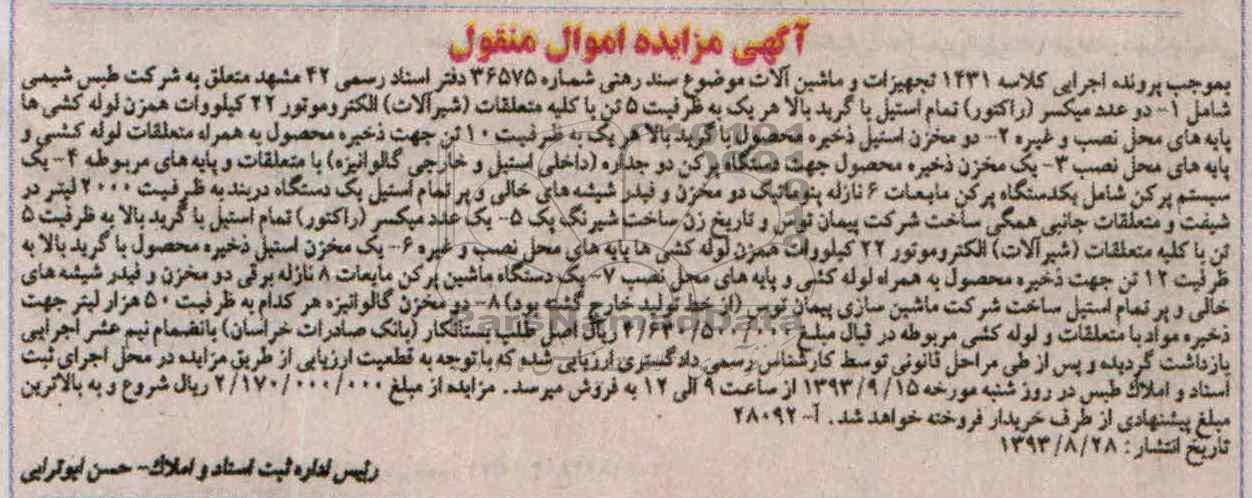 آگهی مزایده اموال منقول
بموجب پرونده اجرایی کلاسه ۱۴۳۱ تجهیزات و ماشین آلات موضوع سند رهنی شماره ۳۶۵۷۵ دفتر اسناد رسمی ۴۲ مشهد متعلق به شرکت طبس شیمی
شامل ۱- دو عدد میکسر (راکتور) تمام استیل با گرید بالا هر یک به ظرفیت ۵ تن با کلیه متعلقات (شیرآلات) الکتروموتور ۲۲ کیلووات همزن لوله کشی ها
پایه های محل نصب و غیره ۲- دو مخزن استیل ذخیره محصول با گرید بالا هر یک به ظرفیت ۱۰ تن جهت ذخیره محصول به همراه متعلقات لوله کشی و
پایه های محل نصب ۳- یک مخزن ذخیره محصول جهت دستگاه پرکن دو جداره (داخلی استیل و خارجی گالوانیزه) با متعلقات و پایه های مربوطه ۴- یک
سیستم پرکن شامل یکدستگاه پرکن مایعات ۶ نازله پنوماتیک دو مخزن و فیدر شیشه های خالی و پر تمام استیل یک دستگاه دربند به ظرفیت ۲۰۰۰ لیتر در
شیفت و متعلقات جانبی همگی ساخت شرکت پیمان توس و تاریخ زن ساخت شیرنگ پک ۵- یک عدد میکسر (راکتور) تمام استیل با گرید بالا به ظرفیت ۵
تن با کلیه متعلقات (شیرآلات) الکتروموتور ۲۲ کیلووات همزن لوله کشی ها پایه های محل نصب و غیره ۶- یک مخزن استیل ذخیره محصول با گرید بالا به
ظرفیت ۱۲ تن جهت ذخیره محصول به همراه لوله کشی و پایه های محل نصب ۷- یک دستگاه ماشین پرکن مایعات ۸ نازله برقی دو مخزن و فیدر شیشه های
خالی و پر تمام استیل ساخت شرکت ماشین سازی پیمان توس (از خط تولید خارج گشته بود) ۸- دو مخزن گالوانیزه هر کدام به ظرفیت ۵۰ هزار لیتر جهت
ذخیره مواد با متعلقات و لوله کشی مربوطه در قبال مبلغ ریال اصل طلب بستانکار (بانک صادرات خراسان) بانضمام نیم عشر اجرایی
بازداشت گردیده و پس از طی مراحل قانونی توسط کارشناس رسمی دادگستری ارزیابی شده که با توجه به قطعیت ارزیابی از طریق مزایده در محل اجرای ثبت
اسناد و املاک طبس در روز شنبه مورخه ۱۳۹۳/۹/۱۵ از ساعت ۹ الی ۱۲ به فروش میرسد. مزایده از مبلغ ۲/۱۷۰/۰۰۰/۰۰۰ ریال شروع و به بالاترین
مبلغ پیشنهادی از طرف خریدار فروخته خواهد شد. آ-۲۸۰۹۲
تاریخ انتشار: ۱۳۹۳/۸/۲۸
رئیس اداره ثبت اسناد و املاک- حسن ابوترابی
ParsNamadData